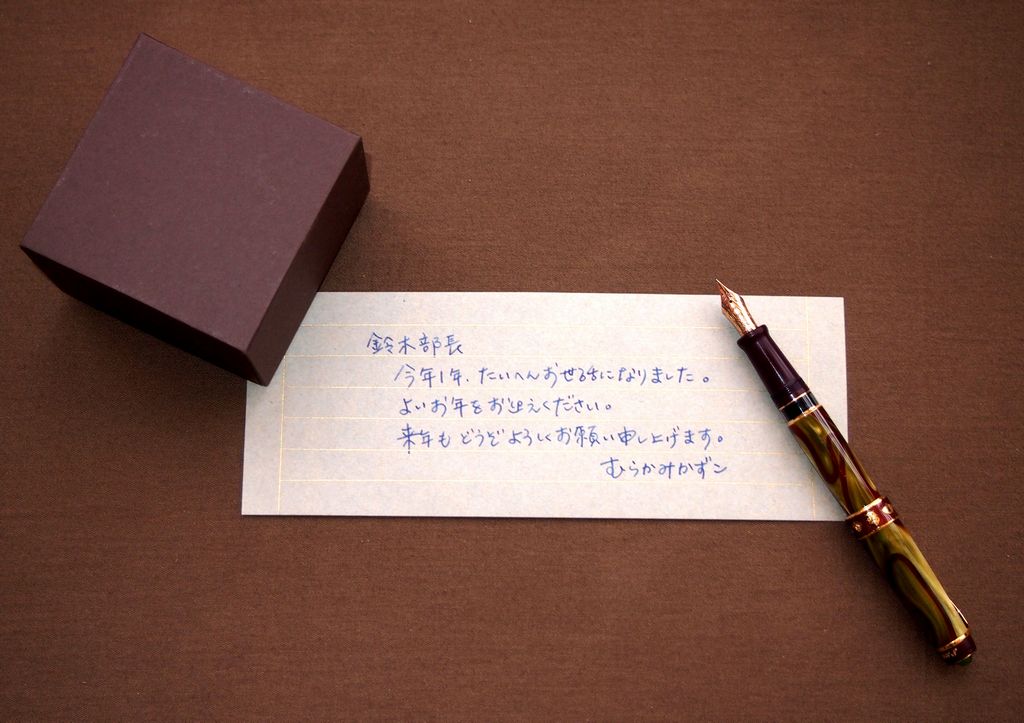 鈴木部長
今年1年、たいへんお世話になりました。
よいお年をお迎えください。
来年もどうぞよろしくお願い申し上げます。
むらかみかずン